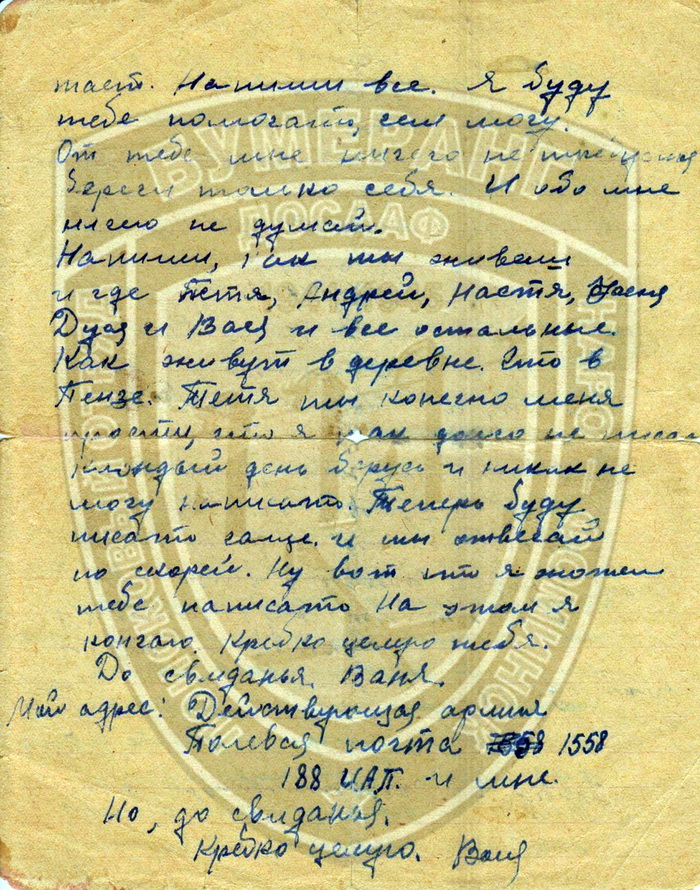 тает. Напиши все. Я буду
тебе помогать, чем могу.
От тебе мне ничего не требуется
Береги только себя. И обо мне
ничего не думай.
Напиши, как ты живеш
и где Петя, Андрей, Настя,
Дуся и Вася и все остальные.
Как живут в деревне. Что в
Пензе. Тетя ты конечно меня
прости, что я так долго не писал
Каждый день берусь и никак не
могу написать. Теперь буду
писать чаще. и ты отвечай
по скорей. Ну вот что я может
тебе написать На этом я
кончаю. Кребко целую тебя.
До свиданья. Ваня.
Мой адрес: Действующая армия
Полевая почта 1558
188 ИАП. и мне.
Но, до свиданья.
Кребко целую. Ваня
БУМЕРАНГ
ДОСААФ
ПОИСКОВЫЙ ОТРЯД
НАРО-ФОМИНСК